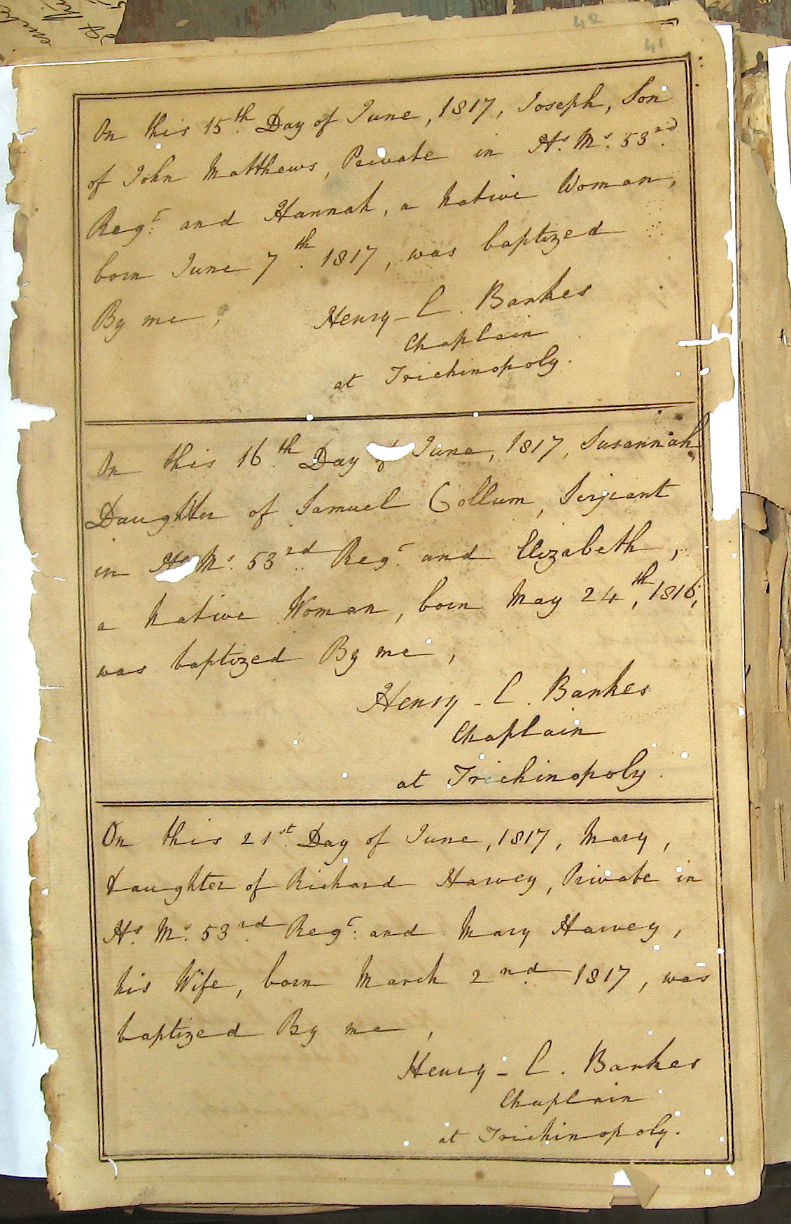 42
41
On this 15th Day of June, 1817, Joseph, Son
of John Matthews, Private in Hs. Ms. 53rd.
Regt. and Hannah, a Native Woman,
born June 7th. 1817, was baptized
By me,
Henry - C. Bankes
Chaplain
at Trichinopoly.
On this 16th Day of June, 1817, Susannah,
Daughter of Samuel Collum, Serjeant
in Hs. Ms. 53rd Regt and Elizabeth,
a Native Woman, born May 24th, 1816,
was baptized By me,
Henry - C. Bankes
Chaplain
at Trichinopoly.
On this 21st. Day of June, 1817, Mary,
Daughter of Richard Harvey, Private in
Hs. Ms. 53rd Regt: and Mary Harvey,
his Wife, born March 2nd 1817, was
baptized By me,
Henry - C. Bankes
Chaplain
at Trichinopoly.